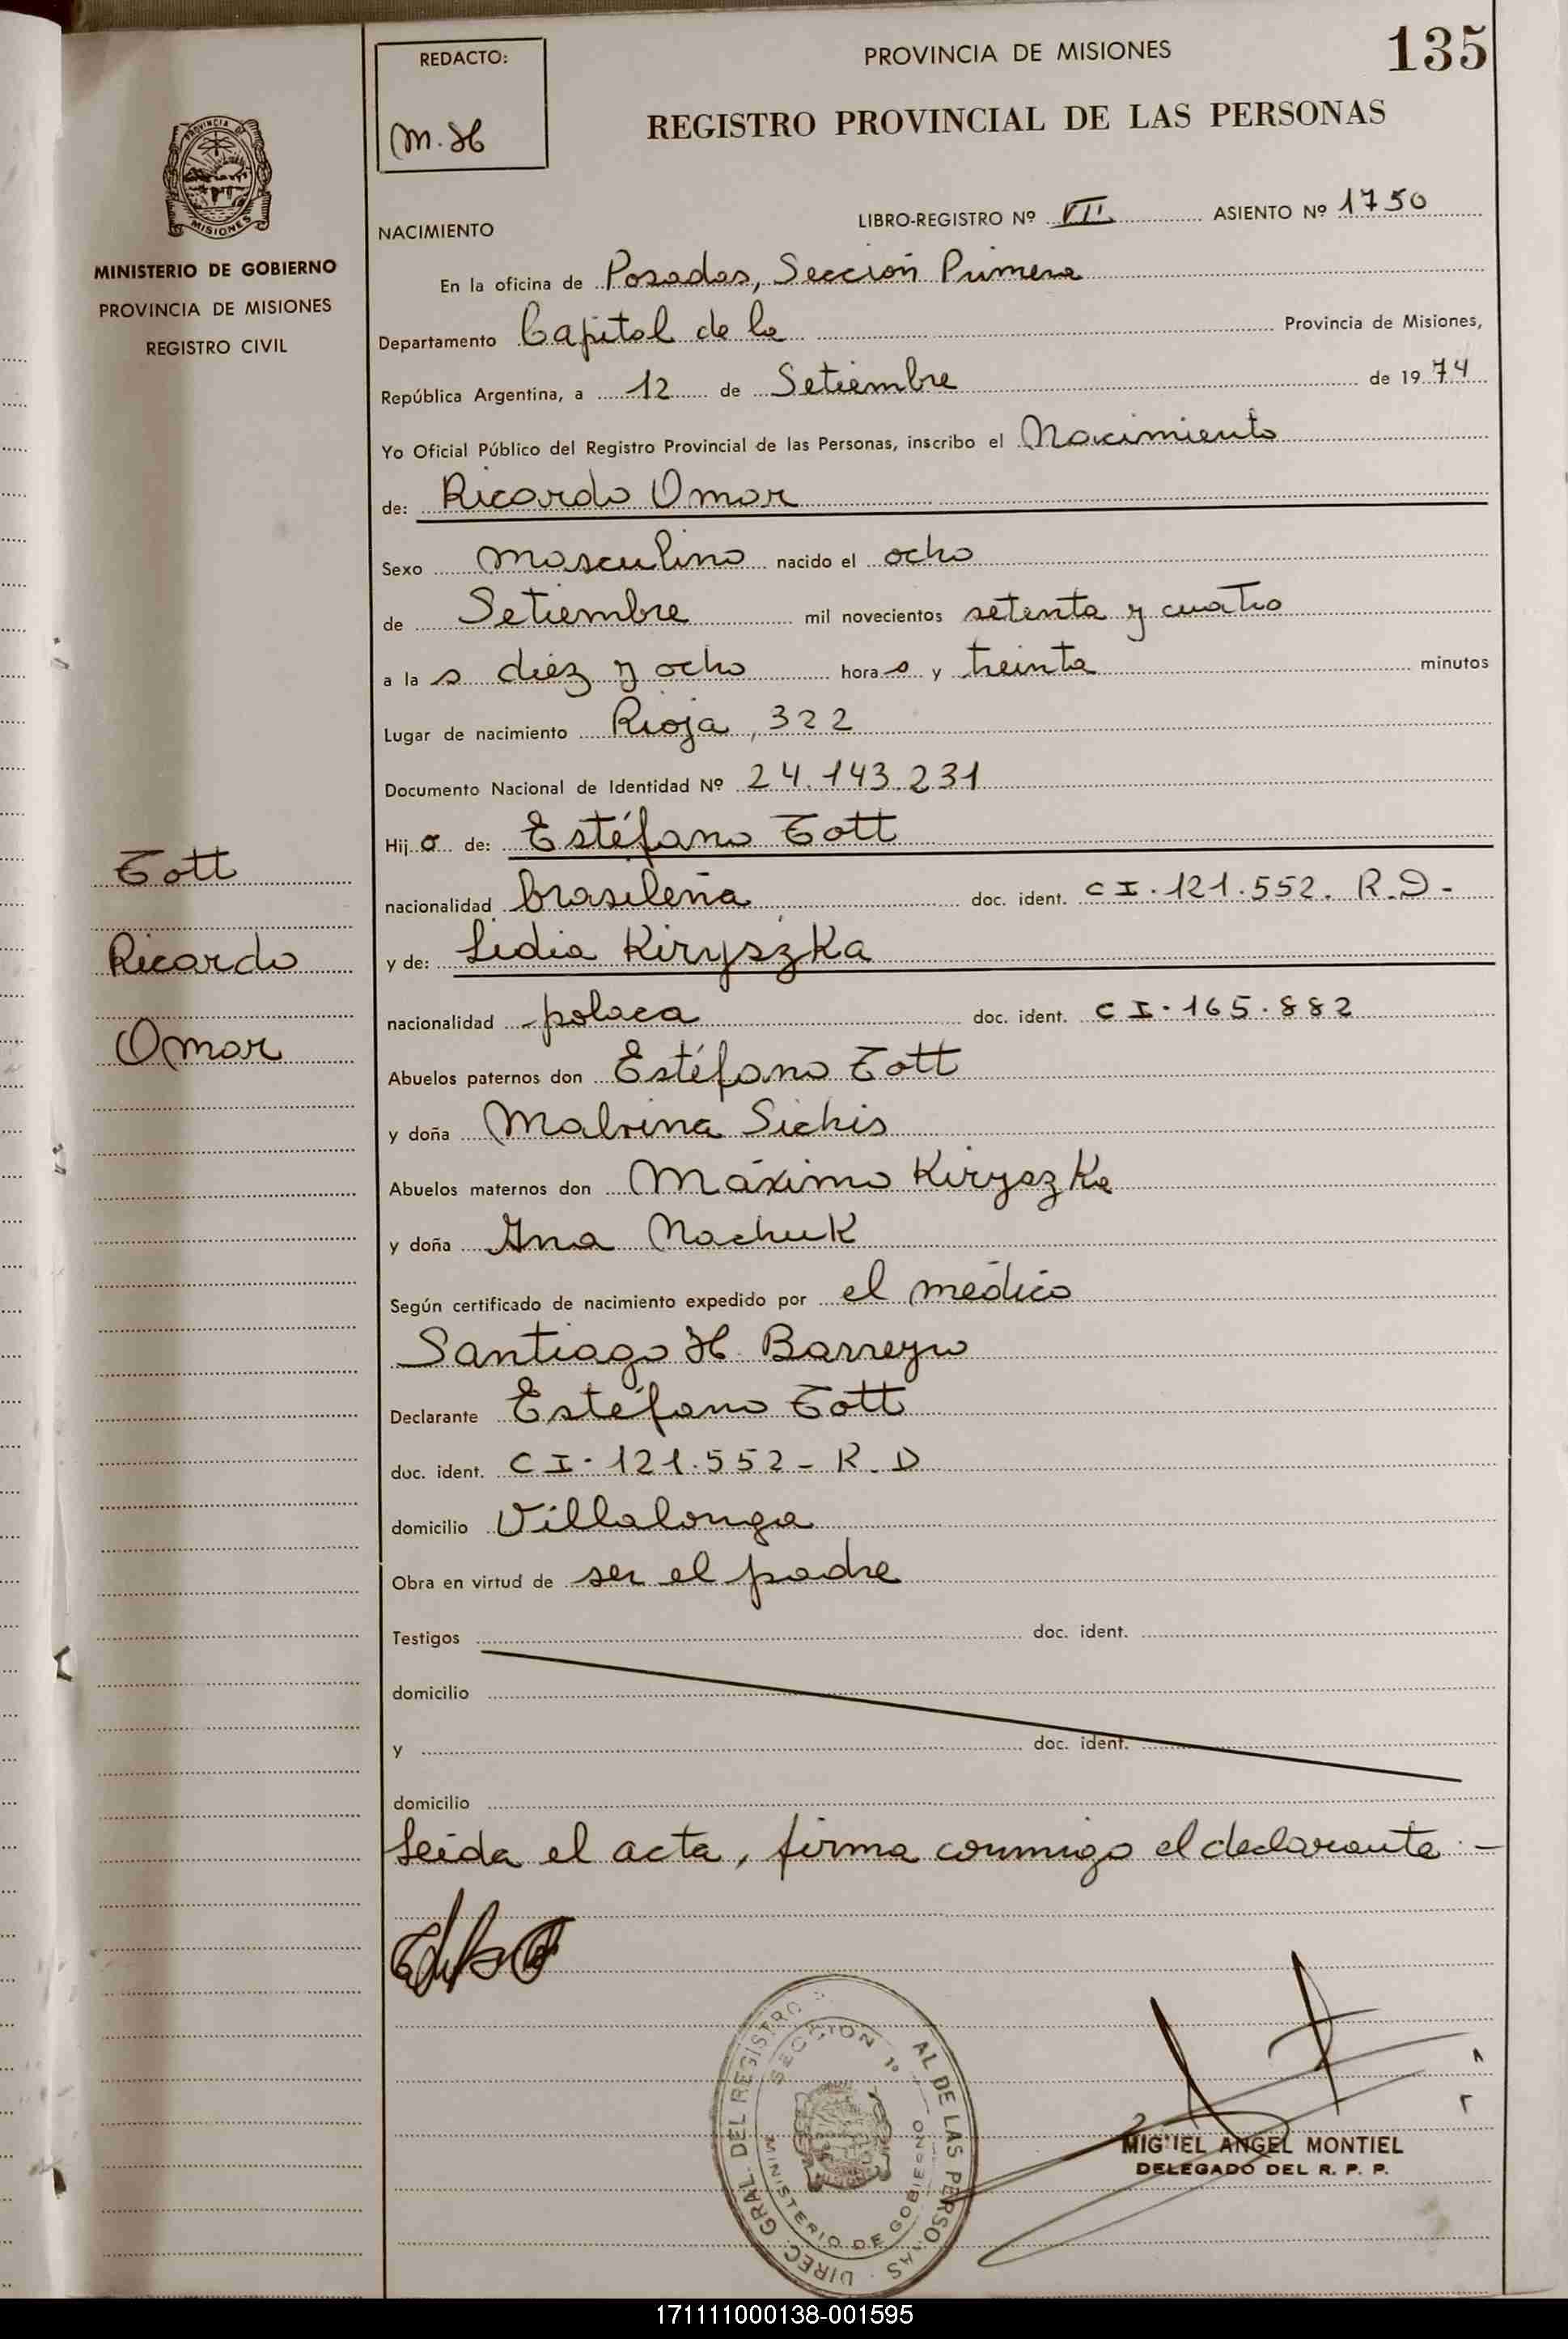 135
REDACTO:
M. H
PROVINCIA DE MISIONES
REGISTRO PROVINCIAL DE LAS PERSONAS
PROVINCIA DE
MISIONES
MINISTERIO DE GOBIERNO
PROVINCIA DE MISIONES
REGISTRO CIVIL
NACIMIENTO
LIBRO-REGISTRO Nº VII ASIENTO Nº 1750
En la oficina de Posadas, Sección Primera
Departamento Capital de la Provincia de Misiones,
República Argentina, a 12 de Setiembre de 1974
Yo Oficial Público del Registro Provincial de las Personas, inscribo el Nacimiento
de: Ricardo Omar
Sexo masculino nacido el ocho
de Setiembre mil novecientos setenta y cuatro
a la s diez y ocho hora s y treinta minutos
Lugar de nacimiento Rioja, 322
Documento Nacional de Identidad Nº 24.143.231
Hij o de: Estéfano Tott
nacionalidad brasileña doc. ident. CI. 121.552. R.D-
y de: Lidia Kiryszka
nacionalidad polaca doc. ident. CI. 165.882
Abuelos paternos don Estéfano Tott
y doña Malvina Sichis
Abuelos maternos don Máximo Kiryszka
y doña Ana Nachuk
Según certificado de nacimiento expedido por el médico
Santiago H. Barreyro
Declarante Estéfano Tott
doc. ident. CI. 121.552 - R.D
domicilio Villalonga
Obra en virtud de ser el padre
Testigos doc. ident.
domicilio
y doc. ident.
domicilio
Leida el acta, firma conmigo el declarante.-
Tott
Ricardo
Omar
DIREC. GRAL. DEL REGISTRO AL DE LAS PERSONAS
SECCION 1º
MINISTERIO DE GOBIERNO
MIGUEL ANGEL MONTIEL
DELEGADO DEL R. P. P.
171111000138-001595